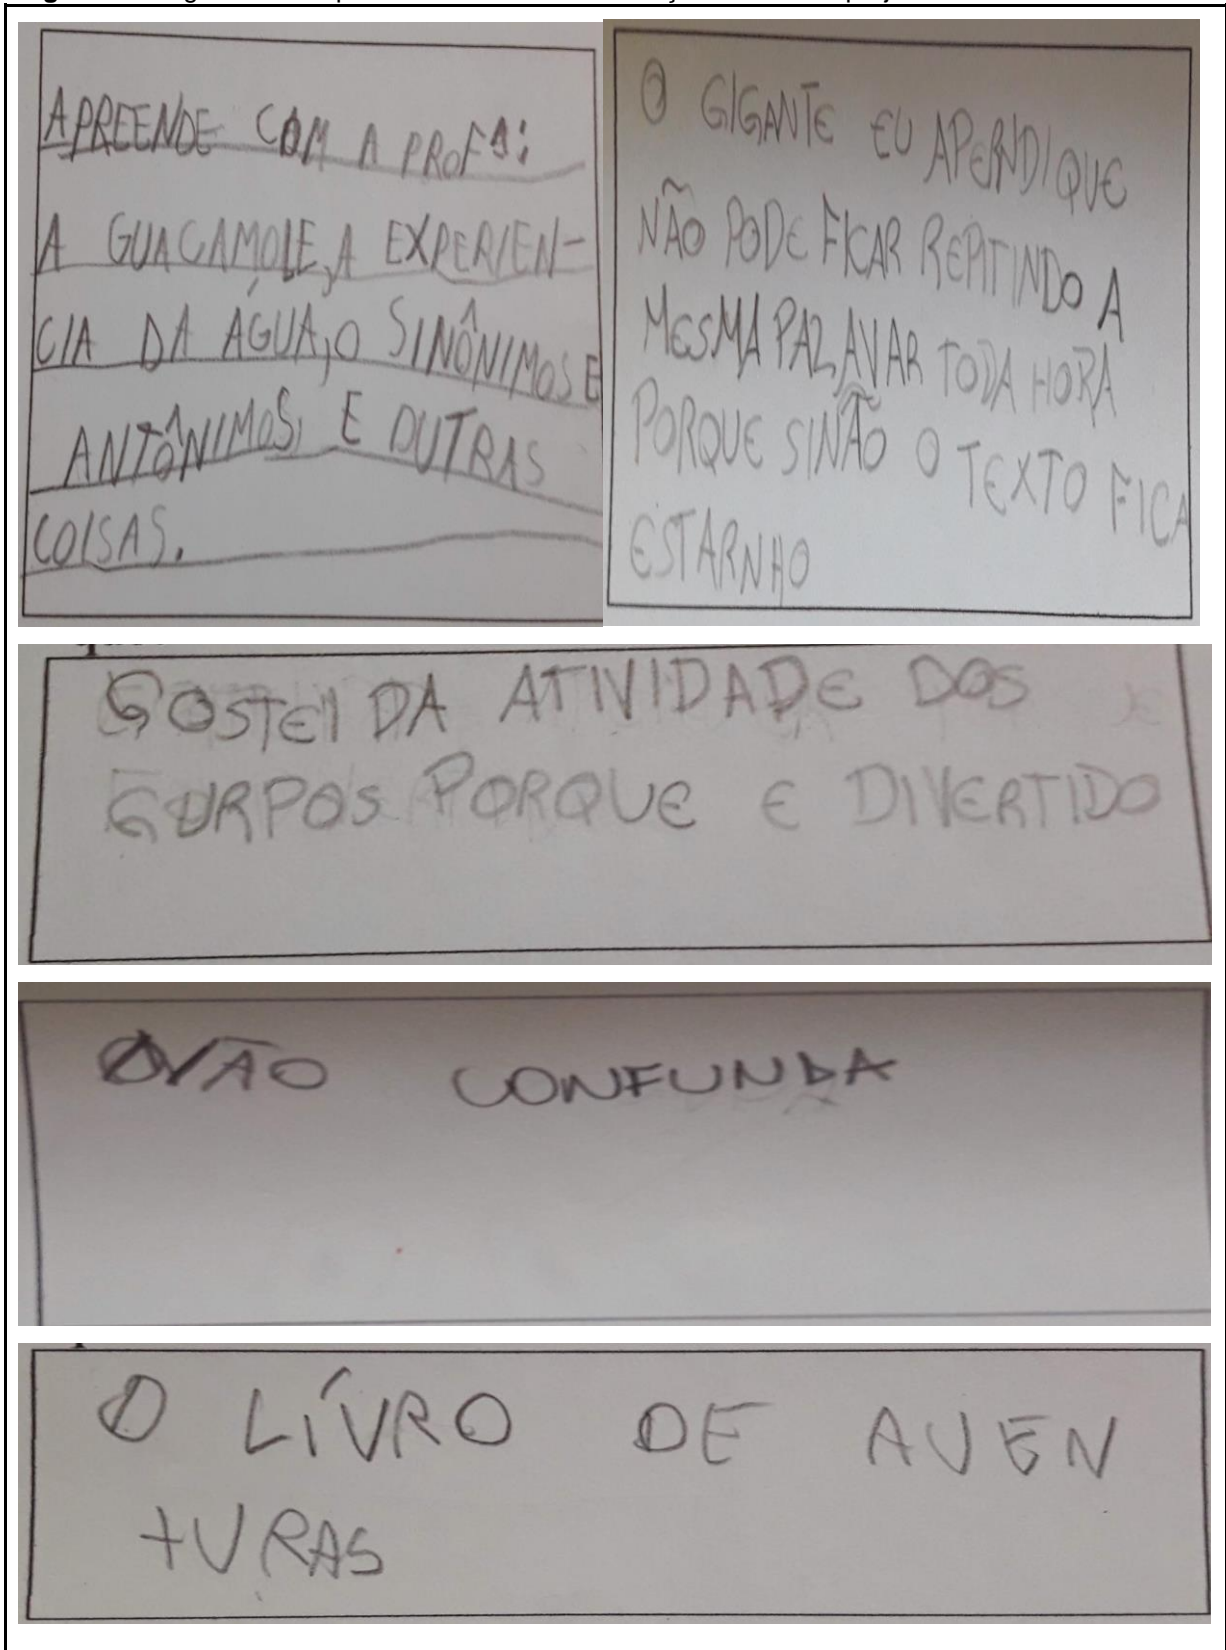 APREENDE COM A PROFª:
A GUACAMOLE, A EXPERIEN-
CIA DA ÁGUA, O SINÔNIMOS E
ANTÔNIMOS, E OUTRAS
COISAS.
O GIGANTE EU APERNDI QUE
NÃO PODE FICAR REPITINDO A
MESMA PALAVAR TODA HORA
PORQUE SINÃO O TEXTO FICA
ESTARNHO
GOSTEI DA ATIVIDADE DOS
GURPOS PORQUE E DIVERTIDO
NÃO CONFUNDA
O LÍVRO DE AVEN
TURAS